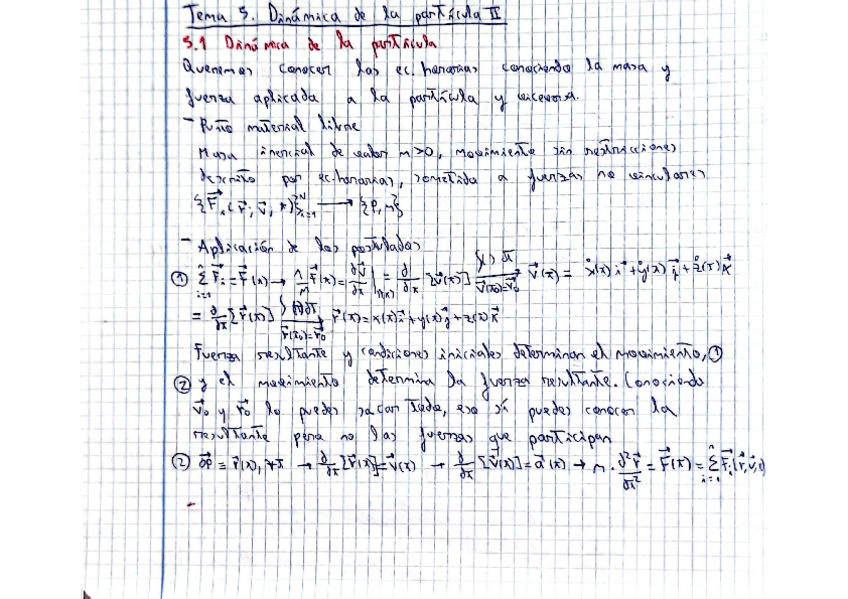 Tema 5. Dinámica de la partícula II
5.1 Dinámica de la partícula
Queremos conocer las ec. horarias conociendo la masa y
fuerza aplicada a la partícula y viceversa.
- Punto material libre
Masa inercial de valor m>0, movimiento sin restricciones
descrito por ec. horarias, sometida a fuerzas no vinculares
{F⃗i(r⃗, v⃗, t)}ᴺi=1 → {P, m}
- Aplicación de los postulados
① Σ F⃗i = F⃗(t) → 1/m F⃗(t) = dv⃗/dt | = d/dt [v⃗(t)] → v⃗(t) = ẋ(t) i⃗ + ẏ(t) j⃗ + ż(t) k⃗
= d/dt [r⃗(t)] → r⃗(t) = x(t) i⃗ + y(t) j⃗ + z(t) k⃗
Fuerza resultante y condiciones iniciales determinan el movimiento, ①
② y el movimiento determina la fuerza resultante. Conociendo
v⃗₀ y r⃗₀ lo puedes sacar todo, eso sí puedes conocer la
resultante pero no las fuerzas que participan
② OP⃗ = r⃗(t), ∀t → d/dt [r⃗(t)] = v⃗(t) → d/dt [v⃗(t)] = a⃗(t) → m · d²r⃗/dt² = F⃗(t) = Σ F⃗i(r⃗, v⃗, t)